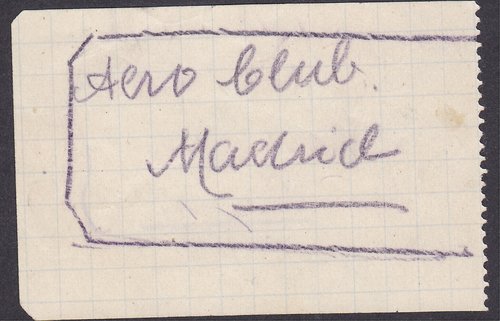 Aero Club.
Madrid